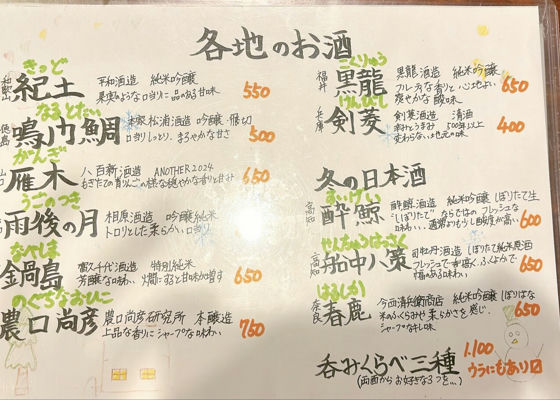 各地のお酒
きっど
和歌山 紀土 平和酒造 純米吟醸
果実のような口当りに品のある甘味 550
なるとたい
徳島 鳴門鯛 本家松浦酒造 純米吟醸・限切
口当りしっとり、まろやかな甘さ 500
がんぎ
雁木 八百新酒造 ANOTHER2024
もぎたての青りんごの様な穏やかな香りと甘み 650
うごのつき
雨後の月 相原酒造 吟醸純米
トロリとした柔らかい口当り 650
なべしま
鍋島 富久千代酒造 特別純米
芳醇な味わい、火間すると甘味増す 650
のぐちなおひこ
農口尚彦 農口尚彦研究所 本醸造
上品な香りにシャープな味わい 750
こくりゅう
福井 黒龍 黒龍酒造 純米吟醸
フルーティな香りと心地よい
爽やかな酸味 650
けんびし
兵庫 剣菱 剣菱酒造 清酒
500年以上
変わらない地元の味 400
冬の日本酒
すいげい
高知 酔鯨 酔鯨酒造 純米吟醸しぼりたて生
"しぼりたて"ならではのフレッシュな
味わい。通常よりも少し酸度が高い 600
せんちゅうはっさく
高知 船中八策 司牡丹酒造 しぼりたて純米原酒
フレッシュで香高く、ふくよかで
幅のある味わい 650
はるしか
奈良 春鹿 今西清兵衛商店 純米吟醸しぼりばな
米のふくらみや柔らかさを感じ
シャープなキレ味 650
呑みくらべ三種 1.100
(両面からお好きな3つを…) ウラにもあり